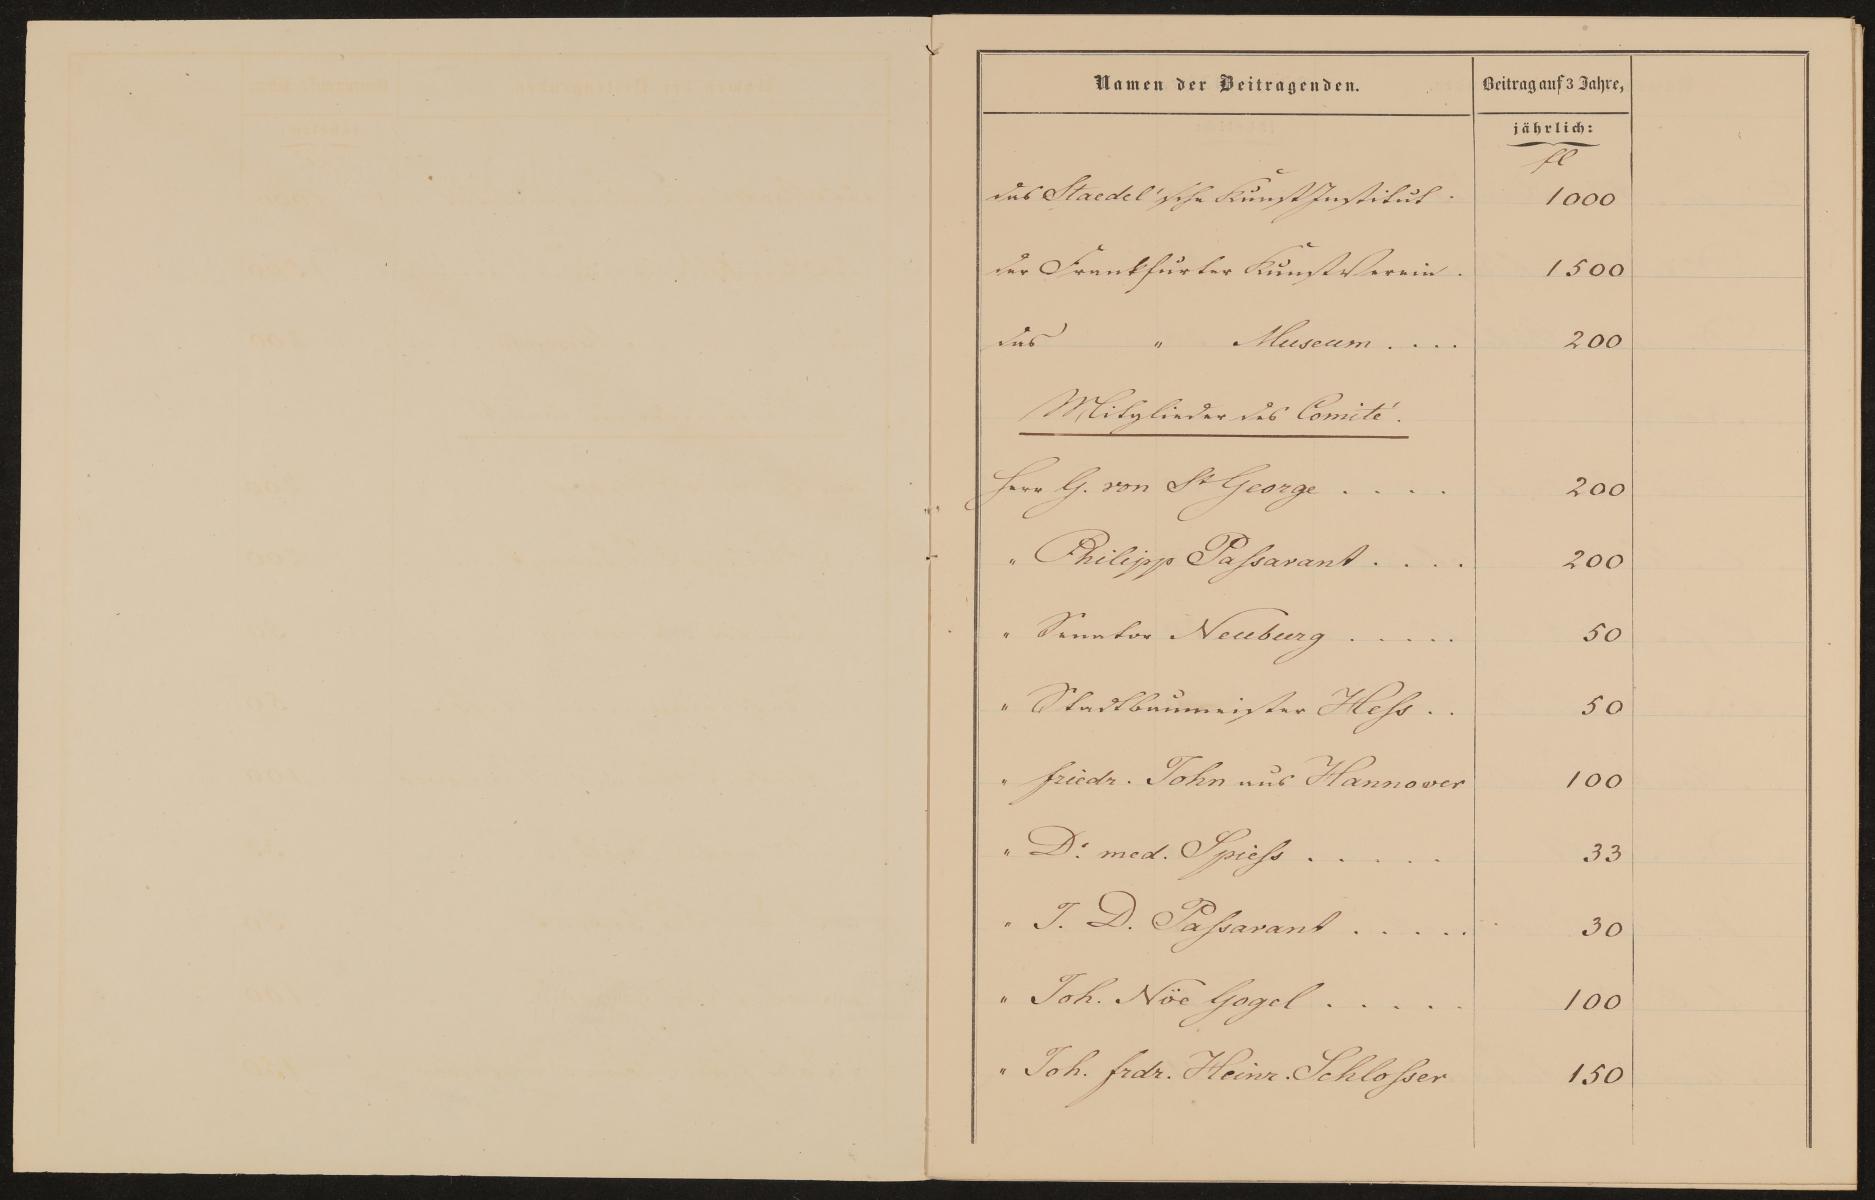 Namen der Beitragenden.
Beitrag auf 3 Jahre,
jährlich:
fl
das Staedel'sche Kunst Institut . 1000
der Frankfurter Kunst Verein . 1500
das " Museum . . . . 200
Mitglieder des Comité.
Herr G. von St George . . . . 200
" Philipp Passavant . . . . 200
" Senator Neuburg . . . . . 50
" Stadtbaumeister Hess . . 50
" friedr. John aus Hannover 100
" Dr. med. Spiess . . . . . 33
" J. D. Passavant . . . . . 30
" Joh. Nöe Gogel . . . . . 100
" Joh. frdr. Heinr. Schlosser 150